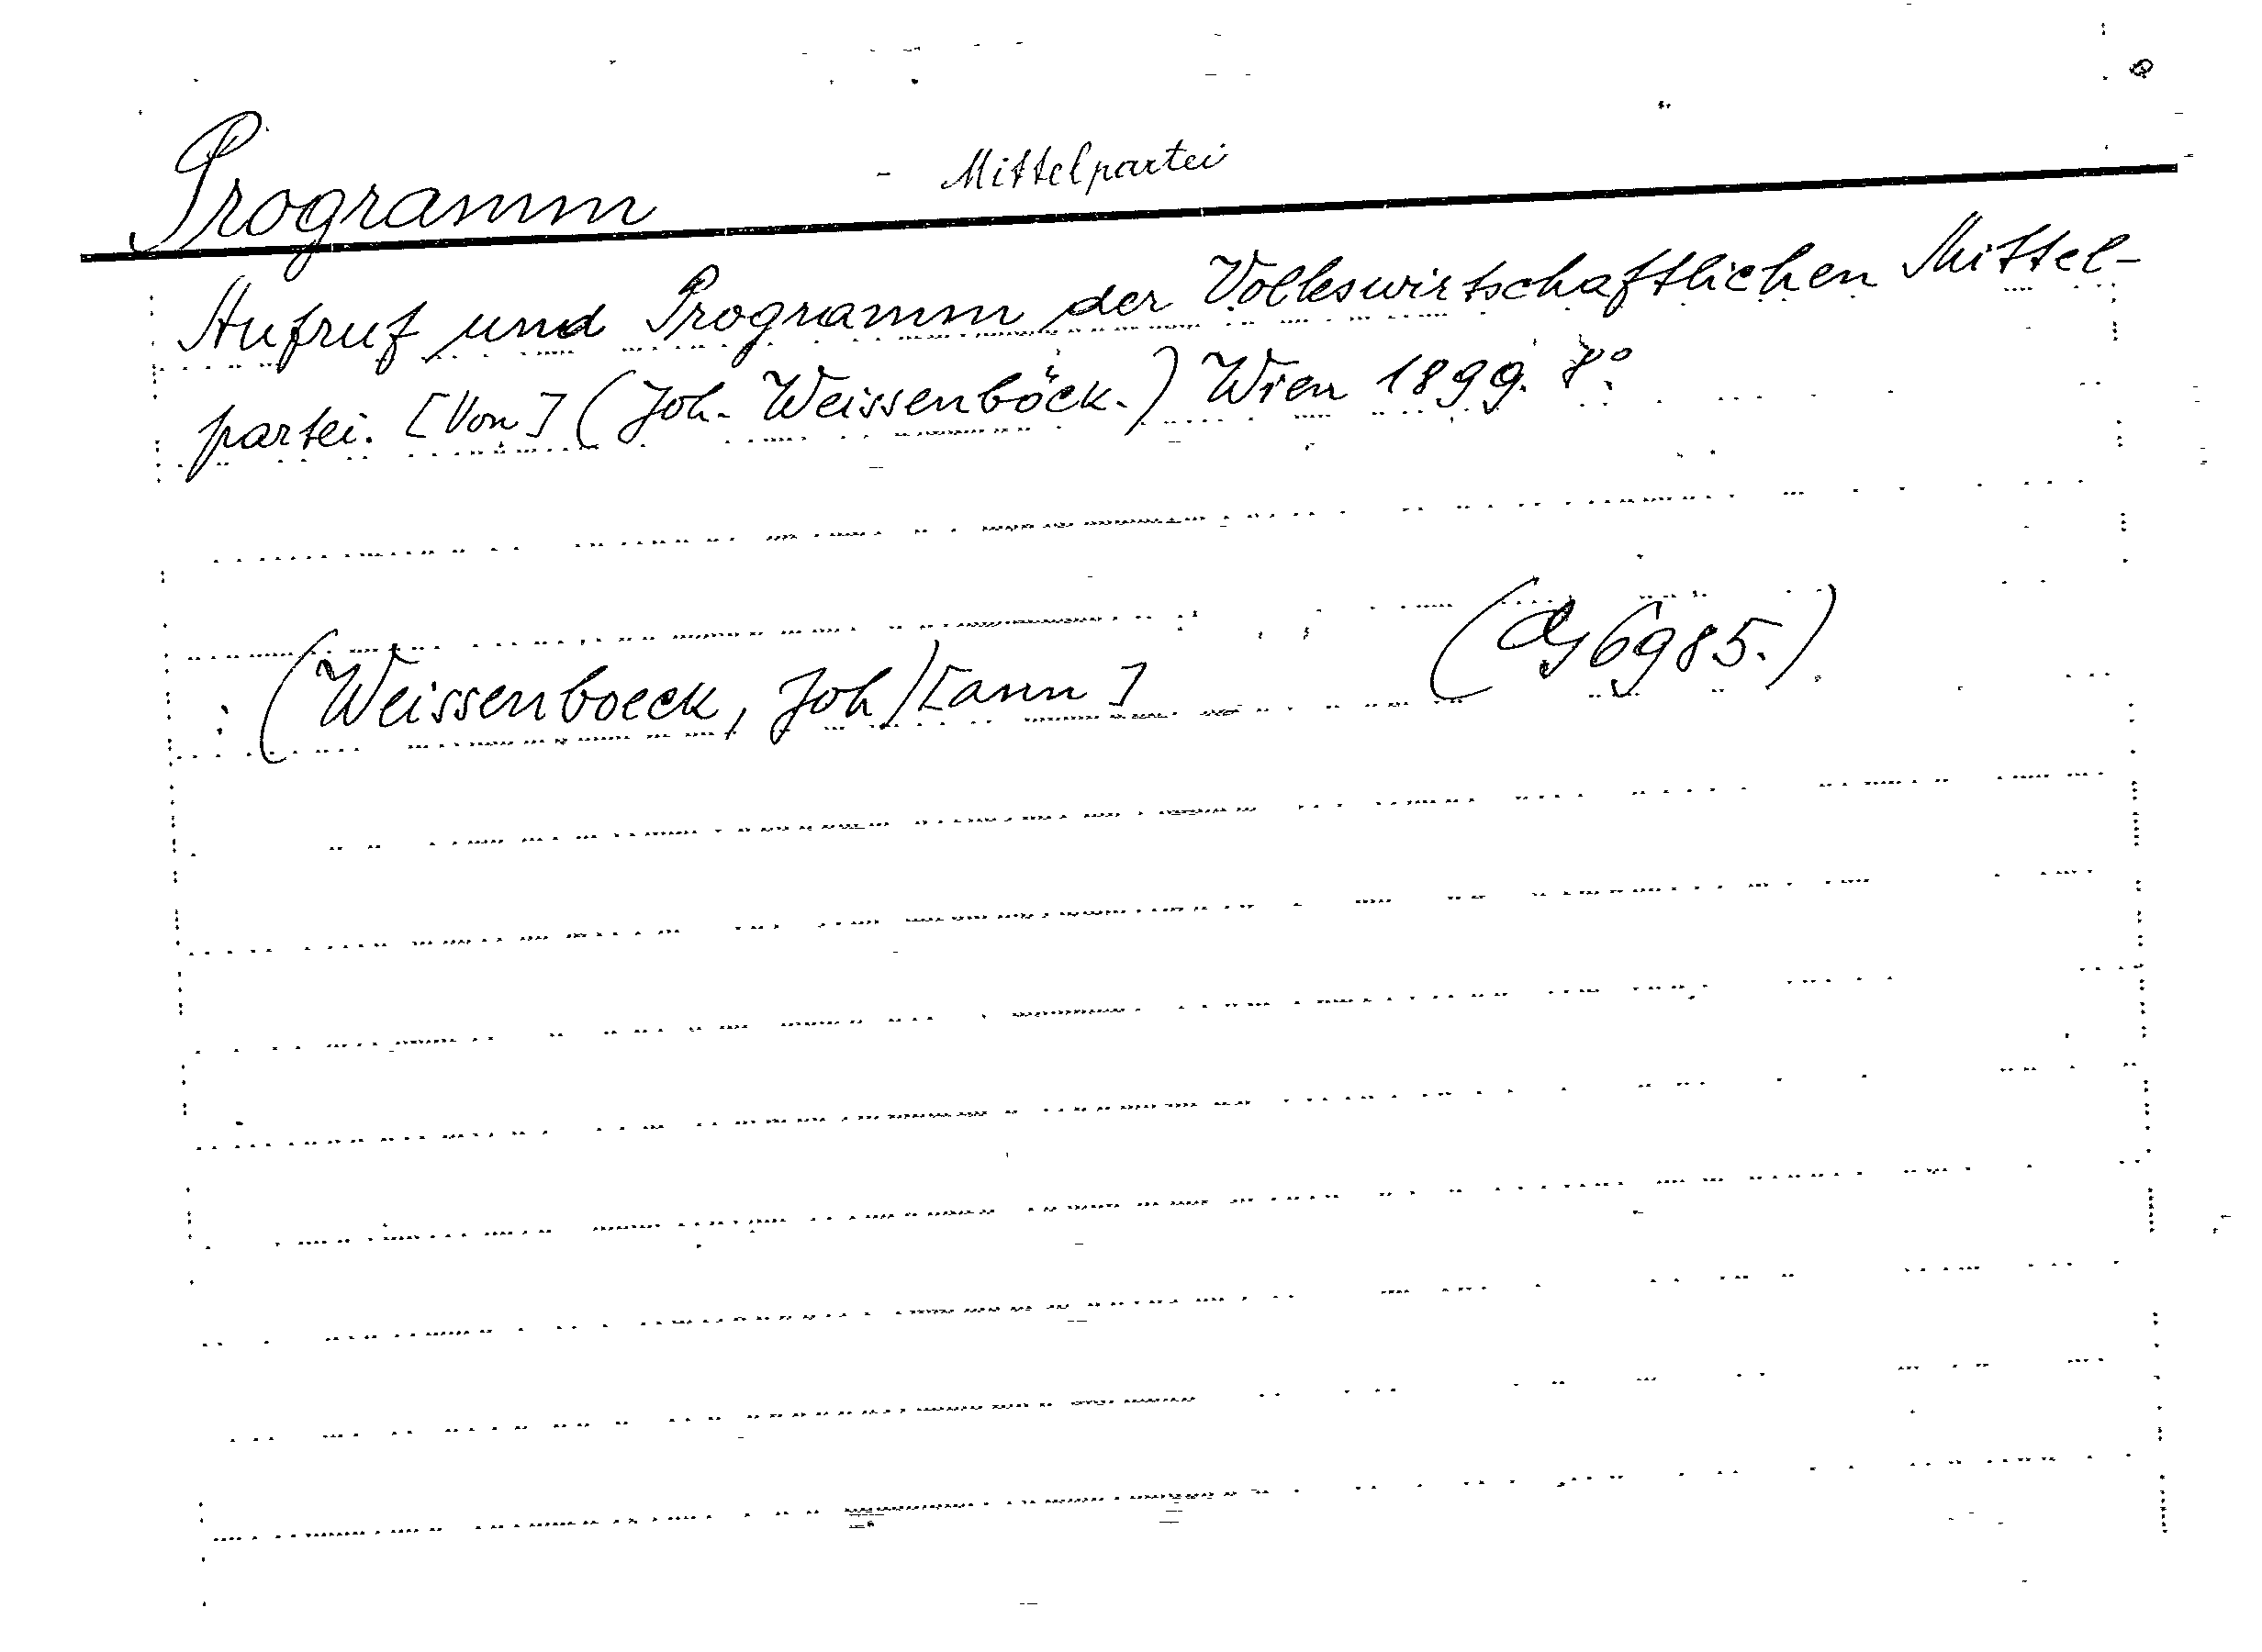 Programm - Mittelpartei
Aufruf und Programm der Volkswirtschaftlichen Mittel-
partei. [Von] (Joh. Weissenböck.) Wien 1899. 8°.
: (Weissenboeck, Joh)[ann] 6985.)